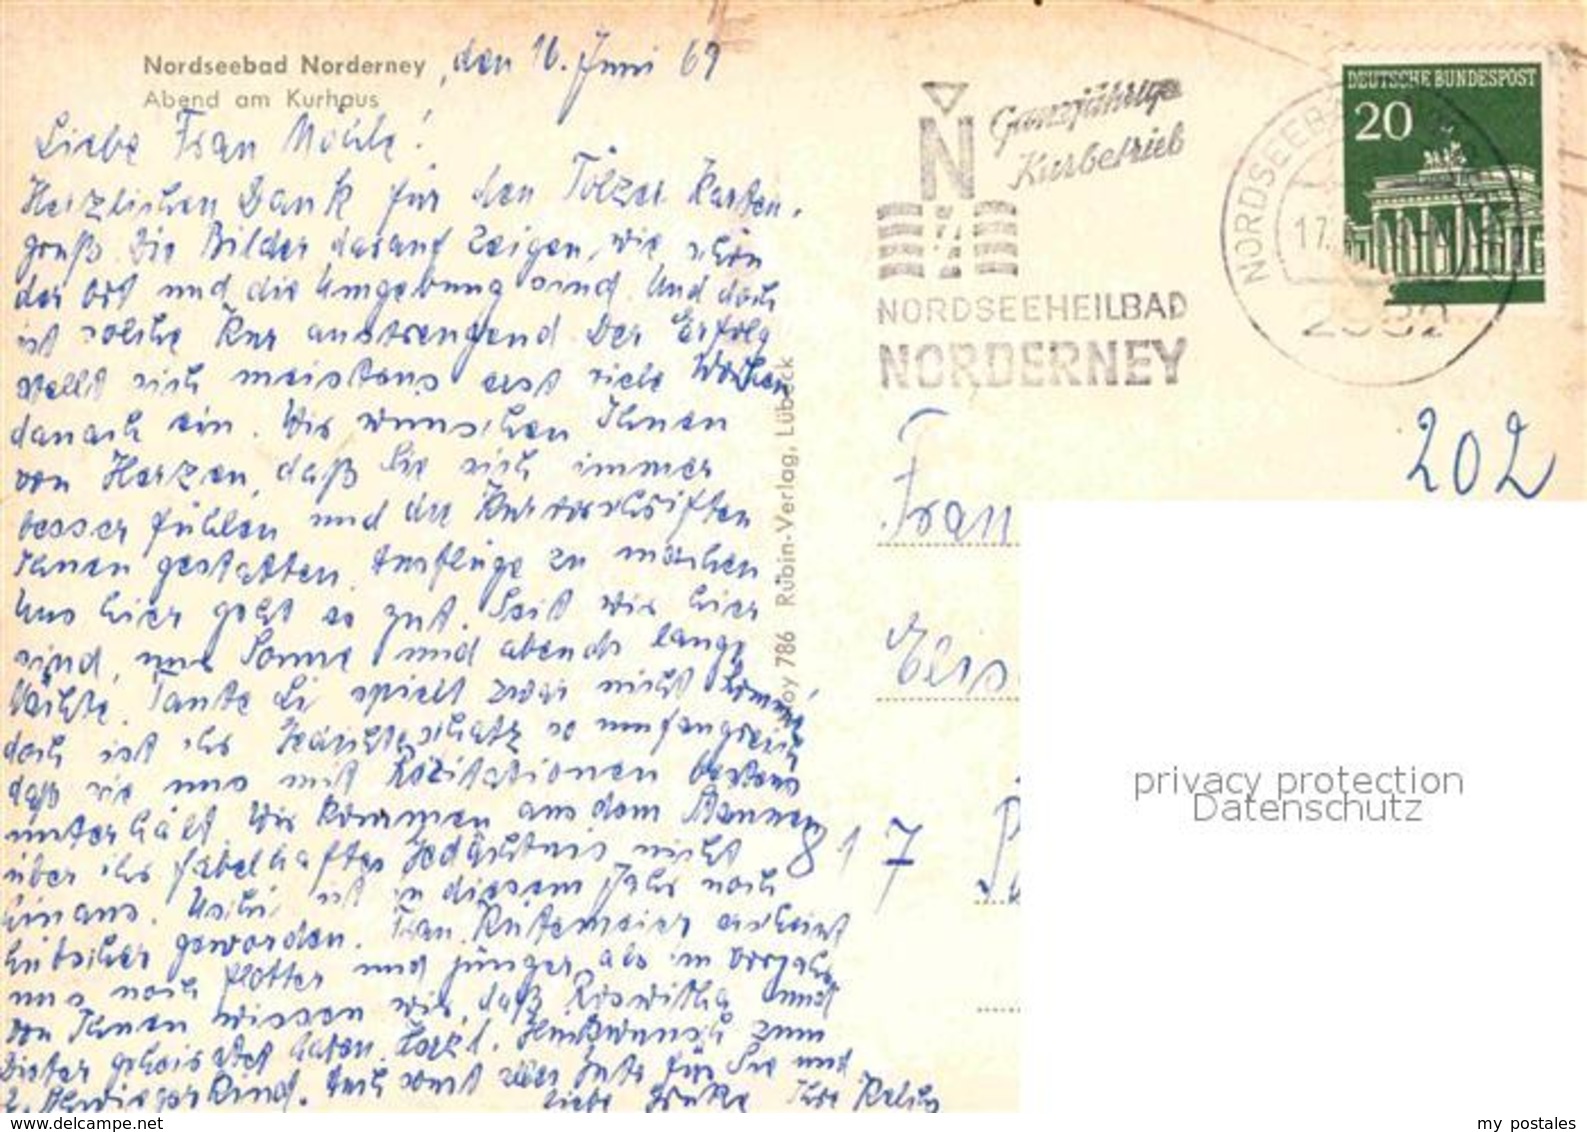 Nordseebad Norderney, den 16. Juni 69
Abend am Kurhaus
Liebe Frau
Herzlichen Dank für den Tölzer Karten-
gruß. Die Bilder darauf zeigen, wie schön
der Ort und die Umgebung sind. Und doch
ist solche Kur anstrengend. Der Erfolg
stellt sich meistens erst viele Wochen
danach ein. Wir wünschen Ihnen
von Herzen, daß Sie sich immer
besser fühlen und die Kurvorschriften
Ihnen gestatten, Ausflüge zu machen.
Uns hier geht es gut. Seit wir hier
sind, nur Sonne und abends lange
Tante Li spielt zwar nicht
doch ist ihr Gedichteschatz so umfangreich
daß sie uns mit Rezitationen bestens
unterhält. Wir kommen aus dem Staunen
über ihr fabelhaftes Gedächtnis nicht
hinaus. Uschi ist in diesem Jahr noch
hübscher geworden. Frau erscheint
uns noch flotter und jünger als im Vorjahr.
Von Ihnen wissen wir, daß Roswitha und
Dieter geheiratet haben. Herzl. Glückwunsch zum
Kind. Auch sonst alles Gute für Sie und
liebe Grüße Ihre
Rubin-Verlag, Lübeck
786
Ganzjährige
Kurbetrieb
N
NORDSEEHEILBAD
NORDERNEY
NORDSEEB
17.
2982
DEUTSCHE BUNDESPOST
20
202
Frau
Elis
817
privacy protection
Datenschutz
my postales
www.delcampe.net